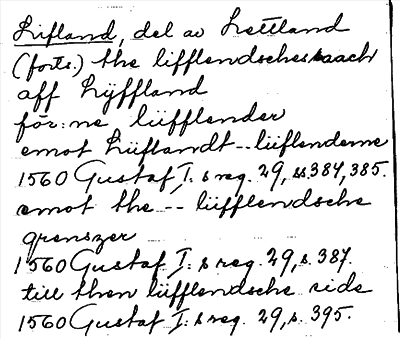 Lifland, del av Lettland
(forts.) the lifflendsche saach
aff Lÿffland
för:ne lüfflender
emot Lüflandt -- lüflenderne
1560 Gustaf I:s reg. 29, ss. 384, 385.
emot the -- lüfflendsche
grenszer
1560 Gustaf I:s reg. 29, s. 387.
till then lüfflendsche side
1560 Gustaf I:s reg. 29, s. 395.